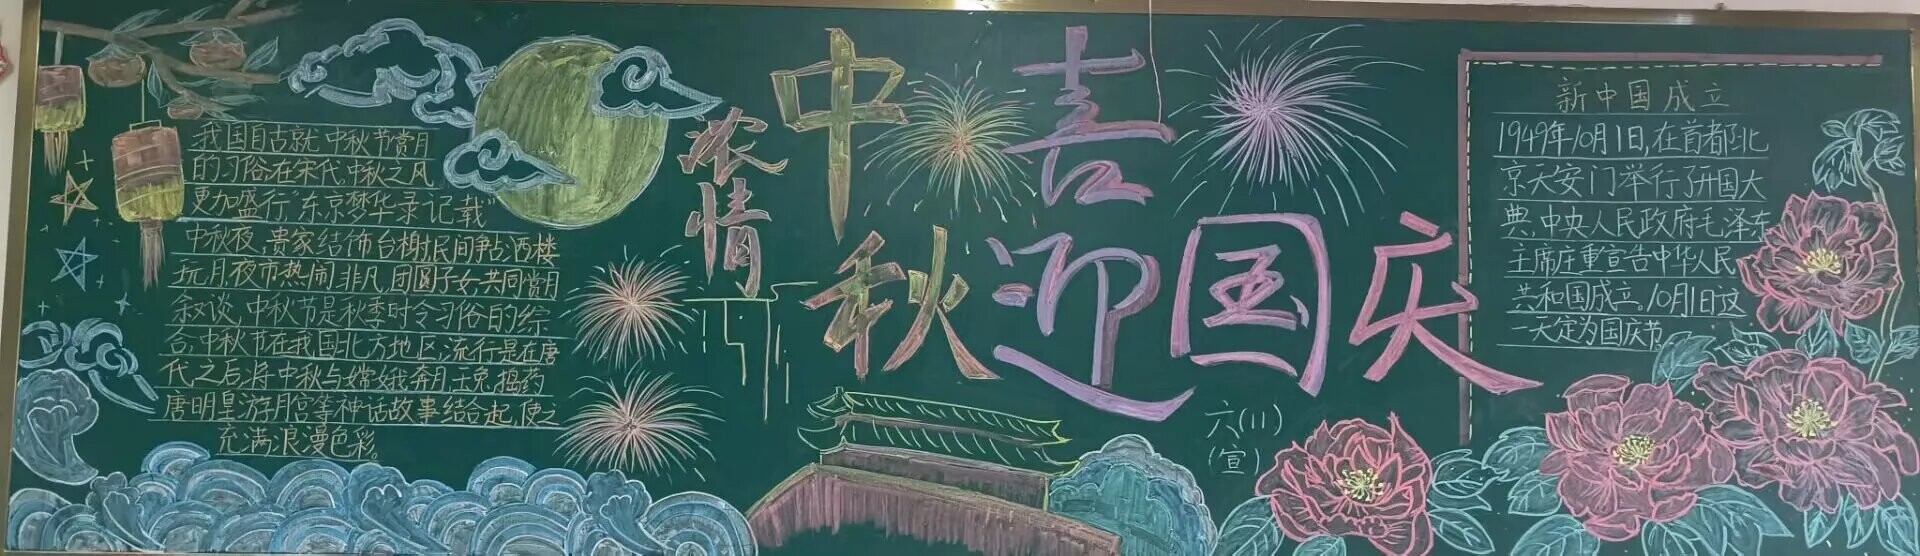 我国自古就中秋节赏月
的习俗,在宋代,中秋之风
更加盛行"东京梦华录记载"
中秋夜,贵家结饰台榭,民间争占酒楼
玩月,夜市热闹非凡,团圆子女共同赏月
叙谈,中秋节是秋季时令习俗的综
合,中秋节在我国北方地区,流行是在唐
代之后,将中秋与嫦娥奔月,玉兔捣药
唐明皇游月宫等神话故事结合起,使之
充满浪漫色彩。
浓情
中秋
喜
迎国庆
六(11)
(宣)
新中国成立
1949年10月1日,在首都北
京天安门举行了开国大
典,中央人民政府毛泽东
主席庄重宣告中华人民
共和国成立。10月1日这
一天定为国庆节